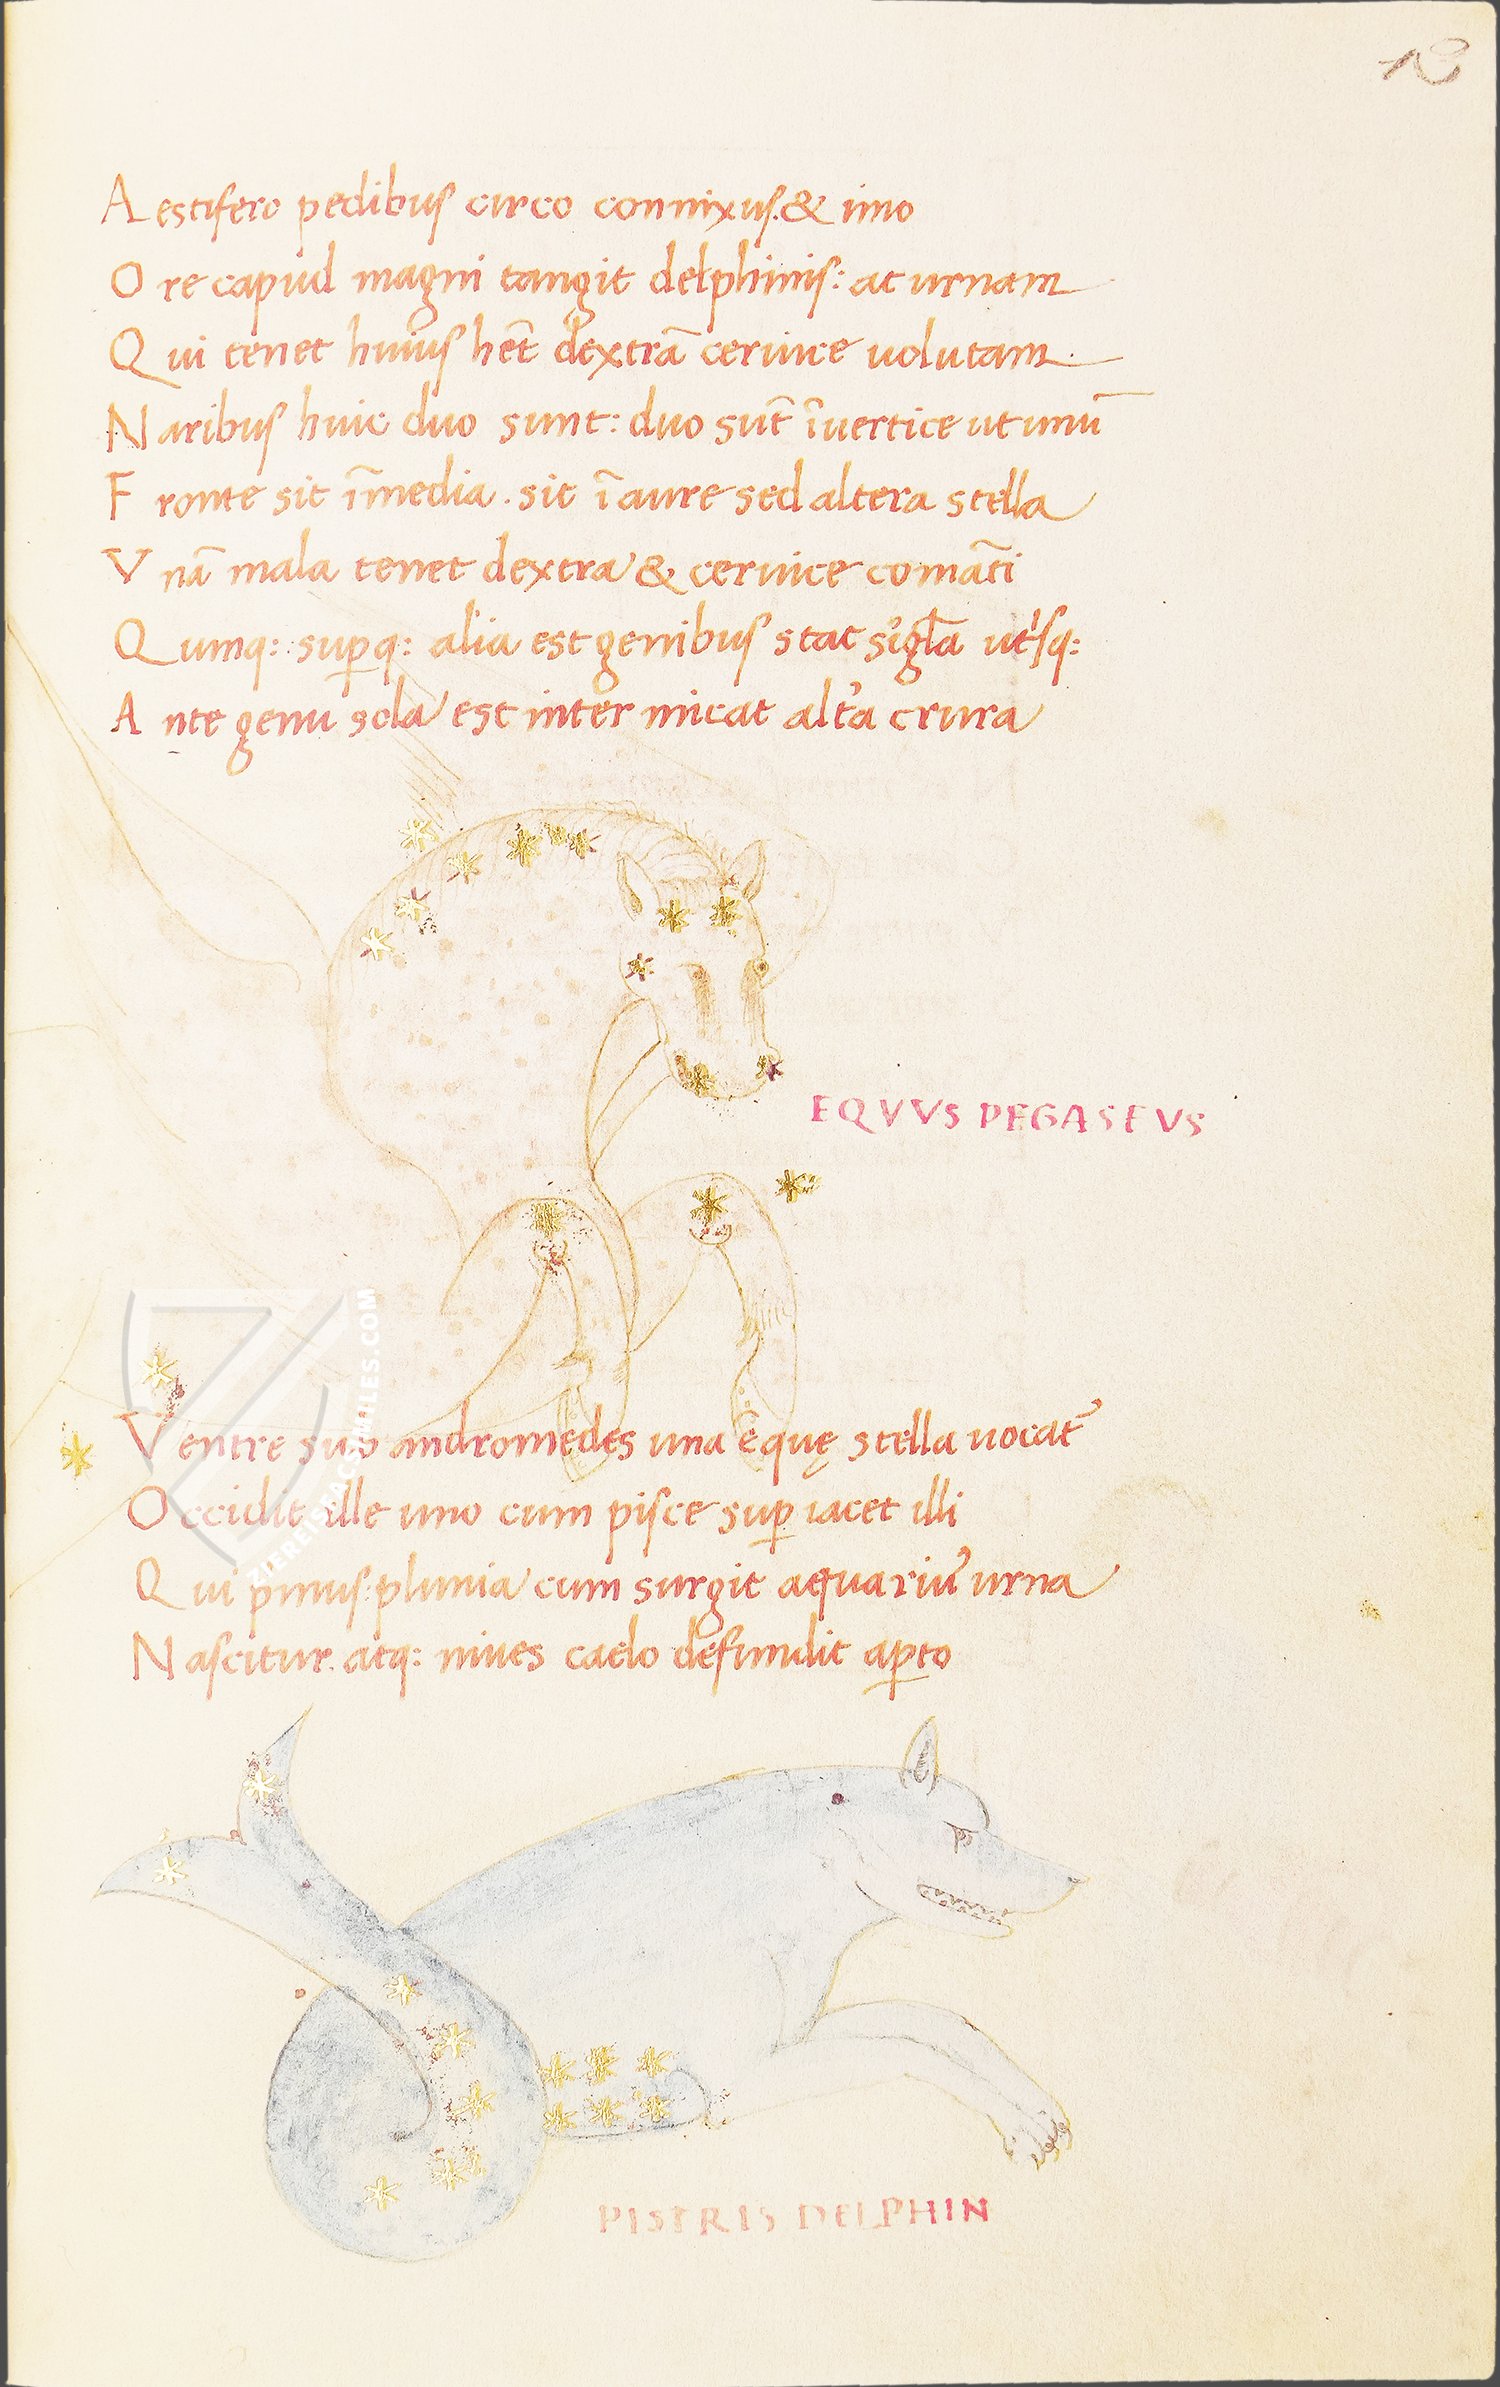 18
Aestifero pedibus circo connixus. & imo
Ore capud magni tangit delphinis: ac urnam
Qui tenet huius hēt dextrā ceruice uolutam.
Naribus huic duo sunt: duo sūt ī uertice ut unū
Fronte sit ī media. sit ī aure sed altera stella
Vnā mala tenet dextra & ceruice comāti
Qumq: sup̱q: alia est genibus stat sīgła ut'sq:
Ante genu sola est inter micat alt'a crura
EQVVS PEGASEVS
Ventre sub andromedes una eque̜ stella uocat'
Occidit ille uno cum pisce sup̱ iacet illi
Qui pmus: pluuia cum surgit aequariu' urna
Nascitur. atq: niues caelo defundit ap̱to
PISTRIS DELPHIN
ZIEREIS FACSIMILES.COM